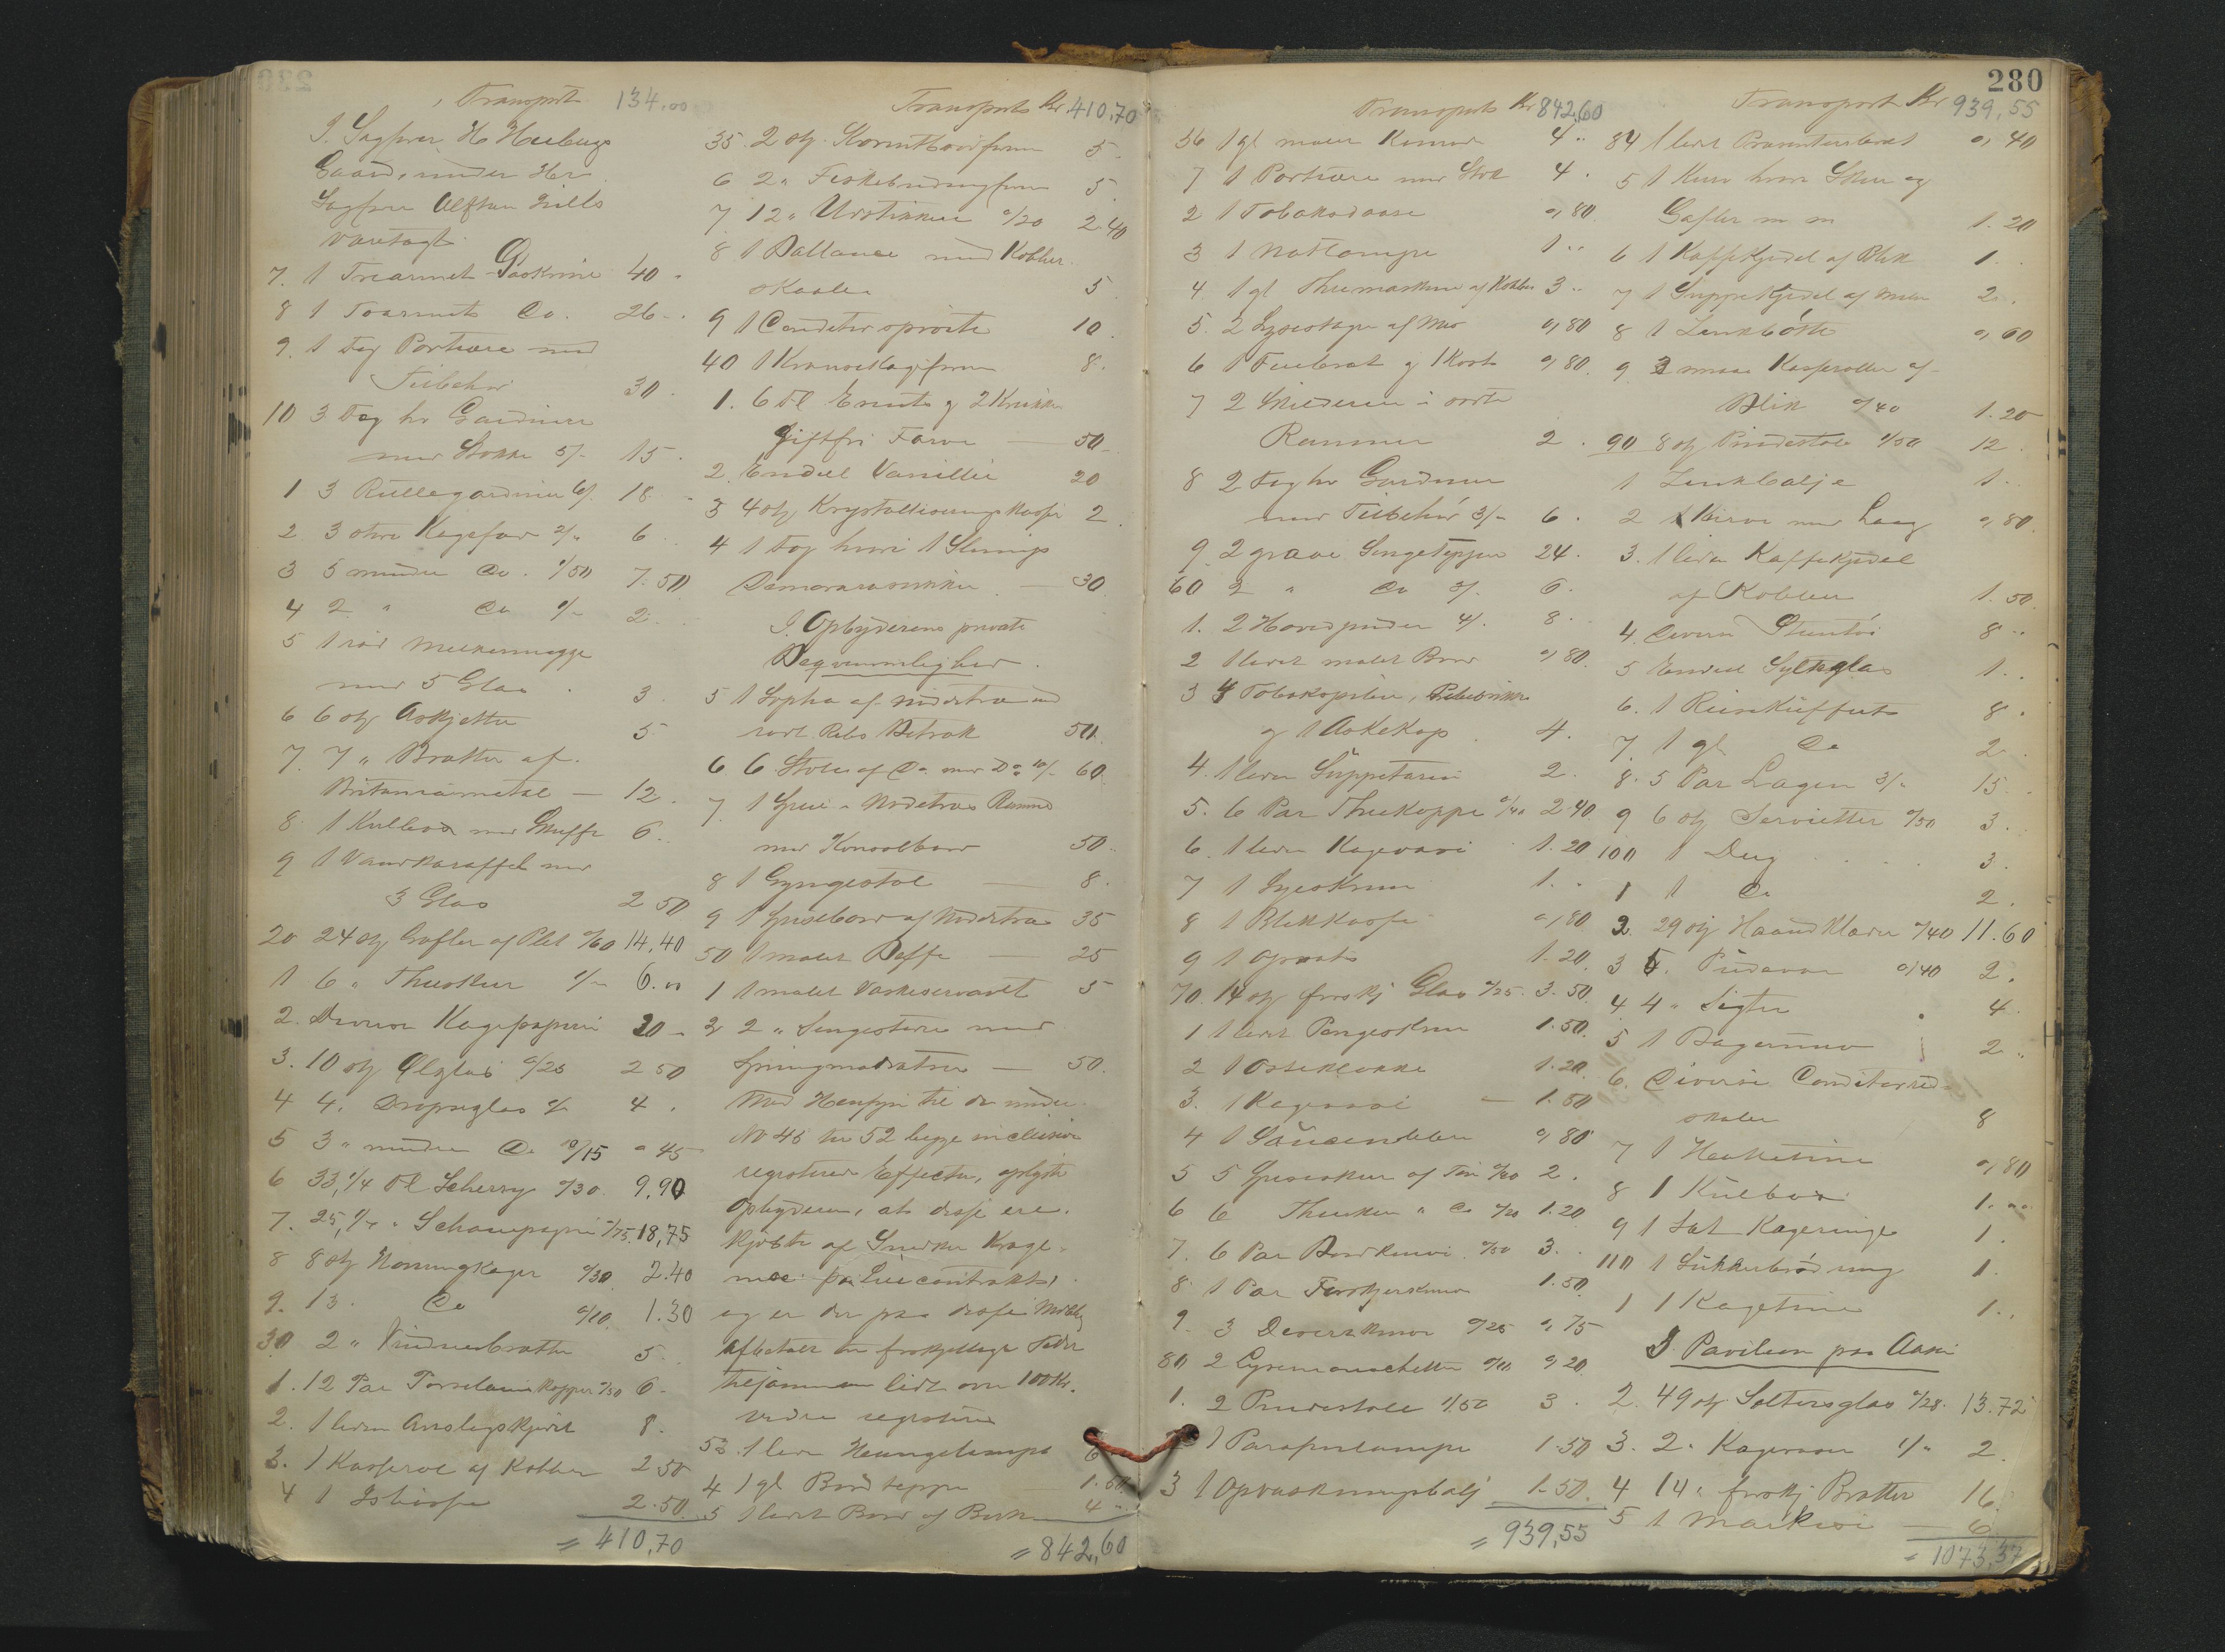 Transport 134.00
I. Sagfører H Heibergs
Gaard, under Hr
Sagfører
varetagt.
7. 1 Trearmet Gaskrone 40 -
8 1 Toarmet Do. 26 -.
9. 1 Fag Portiere med
Tilbehør 30.
10 3 Fag hv Gardiner
med Stokke 5/- 15.
1 3 Rullegardiner 6/. 18. -
2 3 store Kagefad 2/. 6
3 5 mindre Do. 1/50 7.50
4 2 " Do 1/- 2.
5 1 rød Melkemugge
med 5 Glas. 3.
6 6 stk Asjetter 5
7. 7 " Bratter af.
Britaniametal — 12.
8. 1 Kulbox med Skuffe 6.
9 1 Vandkaraffel med
3 Glas 2 50
20 24 stk Gafler af Plet 0/60 14.40
1 6 " Theskeer 1/- 6.00
2. Diverse Kagepapiir 20 -
3. 10 stk Ølglas 0/25 2 50
4 4. Dropsglas 1/- 4.
5 3 " mindre Do 0/15 " 45
6 33, 1/4 Fl Scherry 0/30. 9.90
7. 25, 1/4 " Schampagne 0/75. 18,75
8 8 stk Honningkager 0/30 2.40
9. 13. Do 0/10. 1.30
30 2 " Vinduesbratter 5.
1. 12 Par Porselains Kopper 0/50 6 -
2. 1 liden Anslagskjedel 8.
3. 1 Kasserol af Kobber 2 50
4 1 2.50.
= 410,70
Transport Kr. 410,70
35. 2 stk. Kornthoodformer 5.
6 2 " Fiskebudingform 5.
7. 12 " Udstikkere 0/20 2.40
8 1 Ballance med Kobber.
skaaler 5
9 1 Conditor sprøite 10.
40 1 Kransekageform 8.
1. 6 Fl Essents og 2 Krukker
giftfri Farve — 50 -
2. Endeel Vanillie 20
3 4 stk Krystalliseringskasser 2.
4 1 Fag hvori 1 Slumps
Demararasukker. — 30.
I. Opbyderens private
Beqvemmelighed.
5 1 Sopha af Nødetræ med
rødt Rebs Betræk 50.
6 6 Stoler af Do. med Do 10/- 60.
7. 1 Speil i Nødetræs Ramme
med Konsolbord 50..
8 1 Gyngestol — 8.
9 1 Spisebord af Nødetræ 35
50 1 malet Buffe — 25
1 1 malet Vaskeservant 5
2 2 " Sengesteder med
Springmadratser — 50.
Med Hensyn til de under
No 45 til 52 begge inclusive
registrerede Effecter, oplyste
Opbyderen, at disse ere.
kjøbte af Snedker Krage-
moe paa Leiecontrakt,
og er der paa disse Møbler
afbetalt til forskjellige Tider
tilsammen lidt over 100 Kr.
Videre registreres
53. 1 liden Hængelampe 6
4 1 gl Bordteppe 1.60.
5 1 lidet Bord af Birk 4 "
= 842,60
Transport Kr 842,60
56 1 gl malet Komode 4 ..
7 1 Portiere med Stok 4.
2 1 Tobaksdaase 0,80
3 1 Natlampe 1 ..
4. 1 gl Themaskine af Kobber 3 ..
5. 2 Lysestager af Mes 0,80
6 1 Fuebrat og 1 Kost 0,80.
7 2 Skilderier i sorte
Rammer 2.
8 2 Fag hv Gardiner
med Tilbehør 3/- 6.
9. 2 graae Sengetepper 24.
60 2 " Do 3/. 6.
1. 2 Hovedpuder 4/. 8.
2 1 lidet malet Bord 0,80.
3 4 Tobakspiber,
og 1 Askekop. 4.
4. 1 liden Suppeterin 2.
5. 6 Par Thekopper 0/40 2.40.
6. 1 liden Kagevase 1.20
7 1 Lyseskrin 1..
8 1 Blikkasse 0,80
9 1 1.20.
70. 14 stk forskj Glas 0/25. 3.50.
1 1 lidet Pengeskrin 1.50.
2 1 Osteklokke 1.20.
3. 1 Kagevase — 1.50
4 1 Saucenebber 0,80
5 5 Spiseskeer af Tin 0/40 2.
6 6 Theskeer " Do 0/20 1.20.
7. 6 Par Bordknive. 0/50 3..
8. 1 Par Forskjærskniv 1.50.
9. 3 Desertknive 0/25 0,75
80 2 Lysemanschetter 0/10 0,20
1. 2 Pindestole 1/50 3.
2 1 Parafinlampe 1.50
3 1 Opvaskningsbalj 1.50.
= 939,55
280
Transport Kr 939,55
84 1 lidet Præsenterbræt 0,40
5 1 Kurv hvori Skeer og
Gafler m m 1.20
6 1 Kaffekjedel af Blik 1..
7 1 Suppekjedel af 2..
8 1 Zinkbøtte 0,60
9 3 smaa Kasseroller af
Blik 0/40 1.20
90 8 stk Pindestole 1/50 12.
1 Zinkbalje 1.
2 1 Kurv med Laag 0,80.
3. 1 liden Kaffekjedel
af Kobber 1.50.
4. Diverse Stentøi 8 ..
5 Endeel Sylteglas 1..
6. 1 Reisekuffert 8.
7. 1 gl Do 2..
8. 5 Par Lagen 3/- 15.
9 6 stk Servietter 0/50 3.
100 1 Dug 3.
1 1 Do 2.
2. 29 stk Haandklæder 0/40 11.60
3 5. Pudevar 0/40 2.
4 4 " Sigter 4.
5 1 2 ..
6. Diverse Conditorred-
skaber 8
7 1 0,80
8 1 Kulbox 1...
9 1 Sæt Kageringe 1.
110 1 Sukkerbrødring 1.
1 1 Kagetine 1..
I Pavilion paa
2. 49 stk Seltersglas 0/28. 13.72
3. 2 " Kagevaser 1/" 2.
4 14 " forskj Bratter 16.
5 1 Markise — 6.
= 1073,37